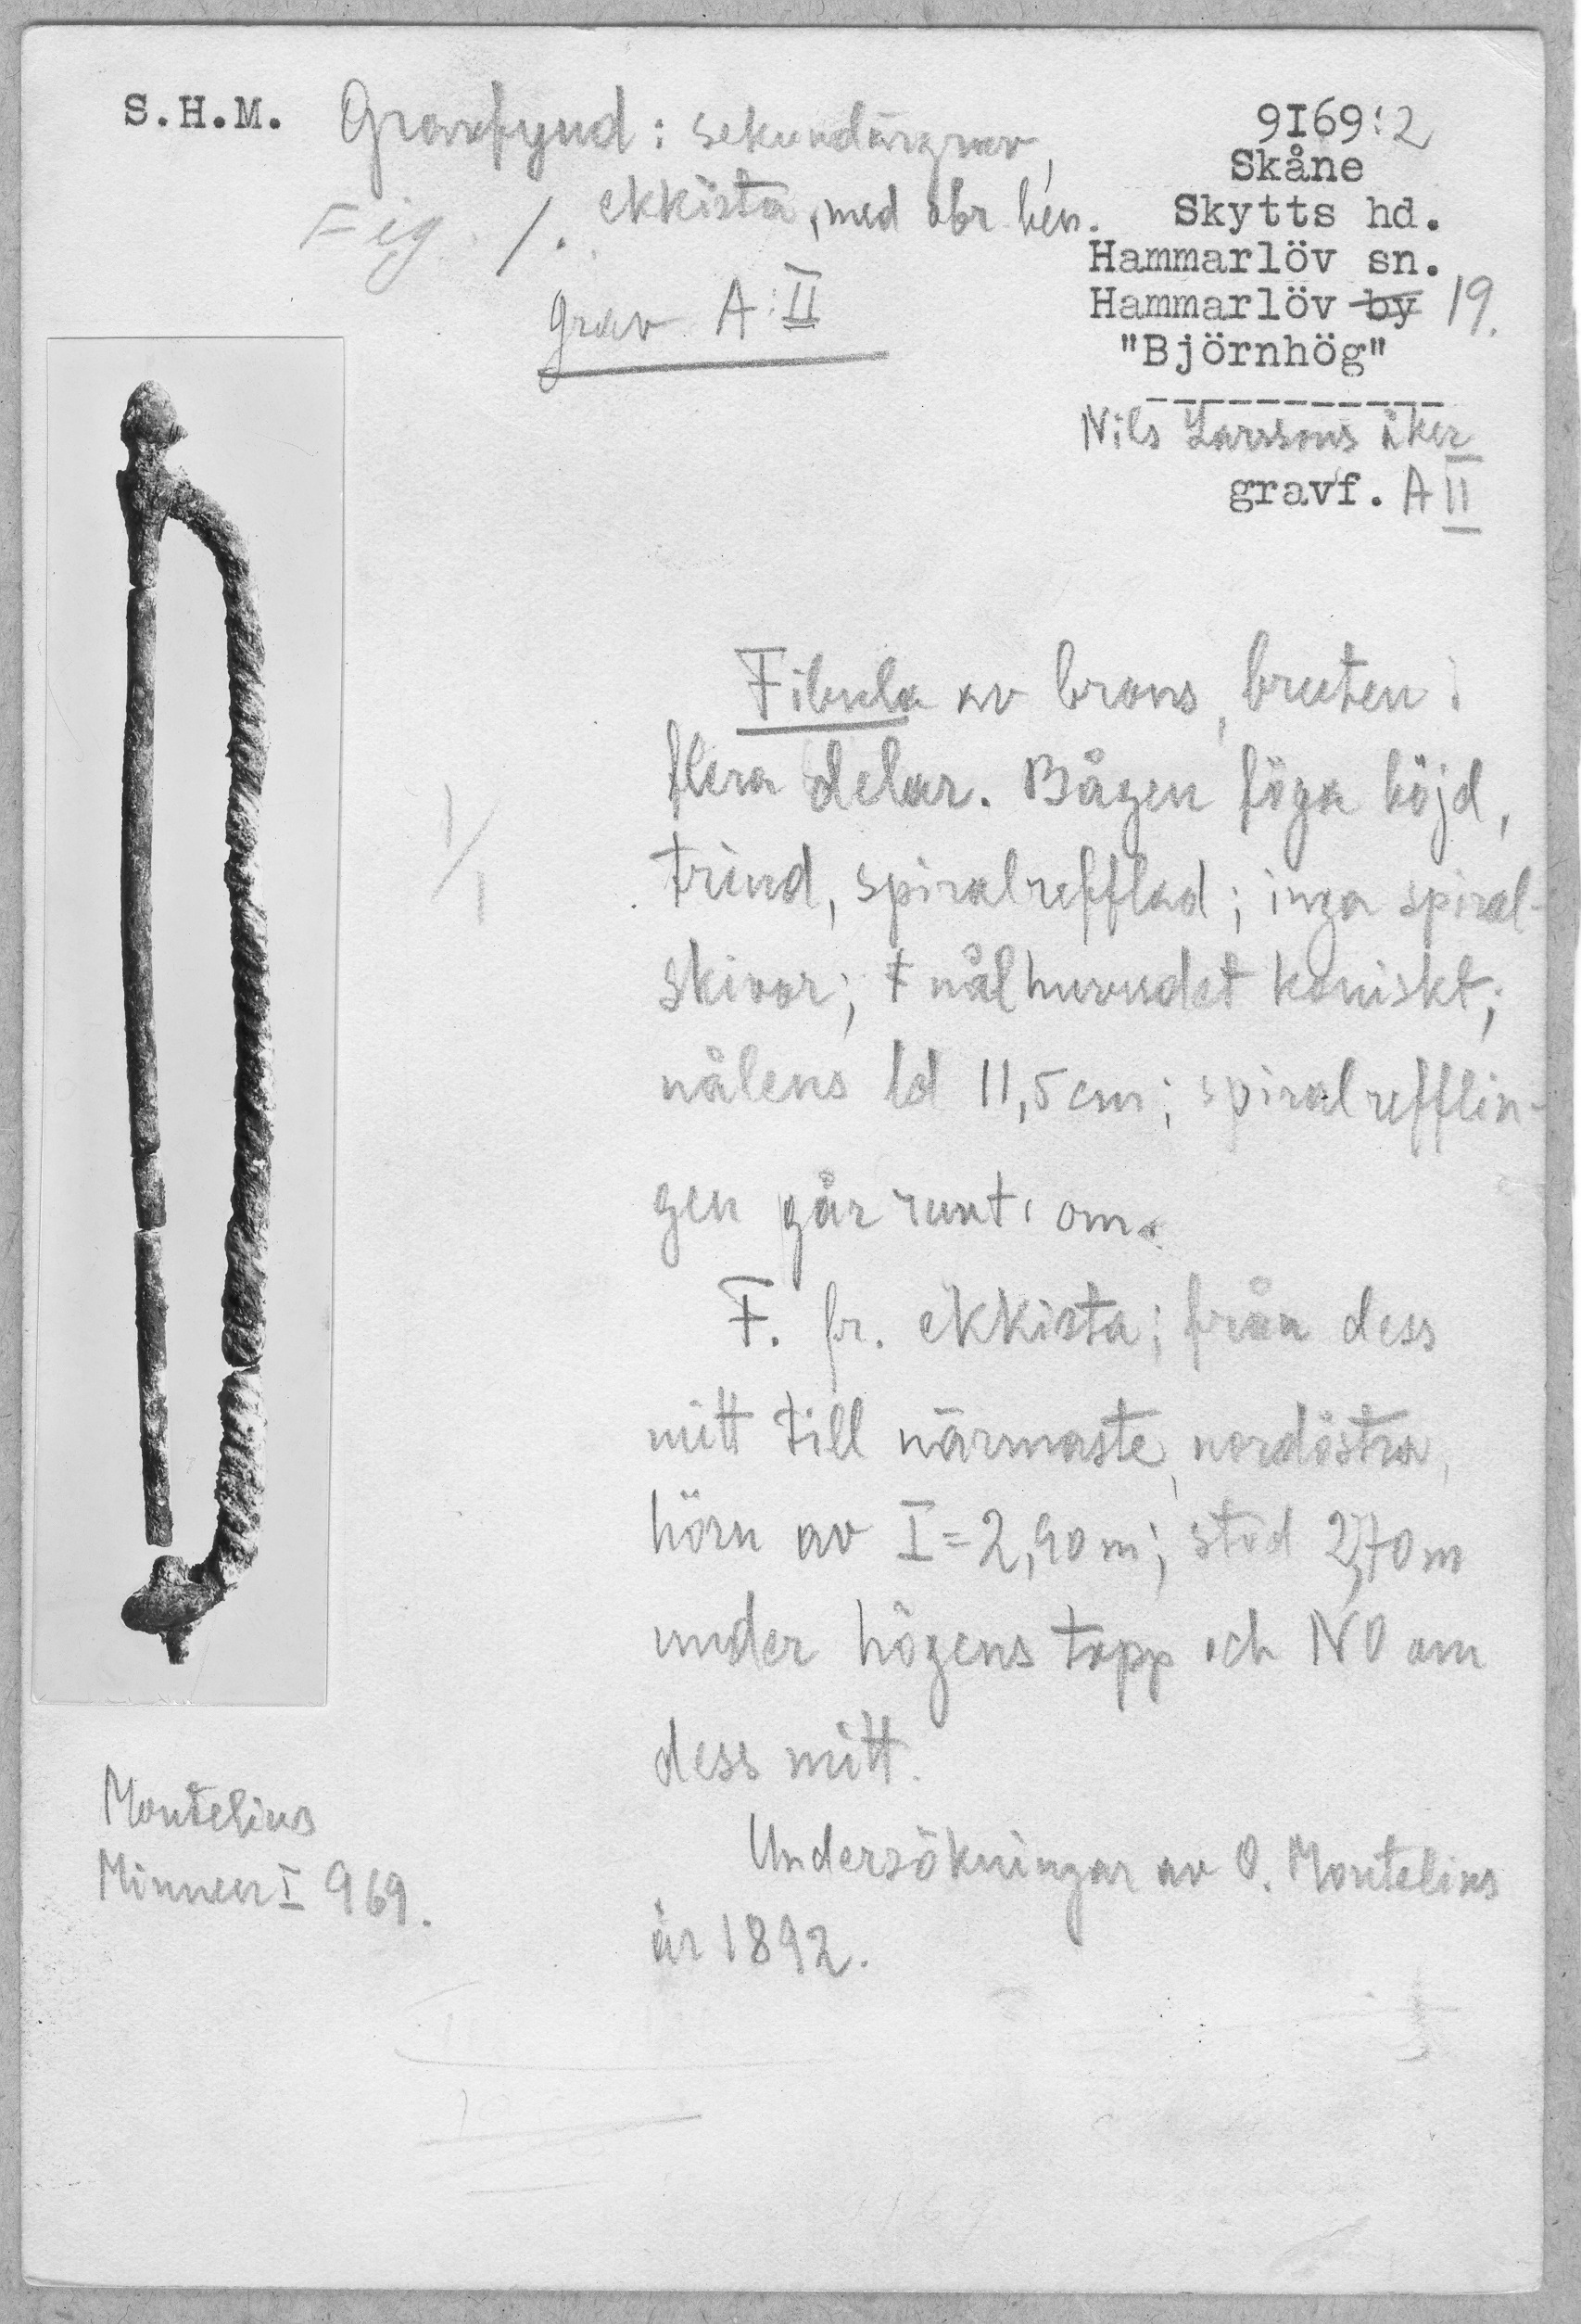 S.H.M.
Gravfynd: sekundärgrav,
ekkista, med obr. ben.
Fig. 1.
grav A:II
9169:2
Skåne
Skytts hd.
Hammarlöv sn.
Hammarlöv by 19.
"Björnhög"
Nils Larssons åker
gravf. A II
1/1
Fibula av brons, bruten i
flera delar. Bågen föga höjd,
trind, spiralrefflad; inga spiral-
skivor; nålhuvudet koniskt;
nålens ld 11,5 cm; spiralrefflin-
gen går runt om.
F. fr. ekkista; från dess
mitt till närmaste, nordöstra,
hörn av I = 2,90 m; stod 2,70 m
under högens topp och NO om
dess mitt.
Undersökningar av O. Montelius
år 1892.
Montelius
Minnen I 969.